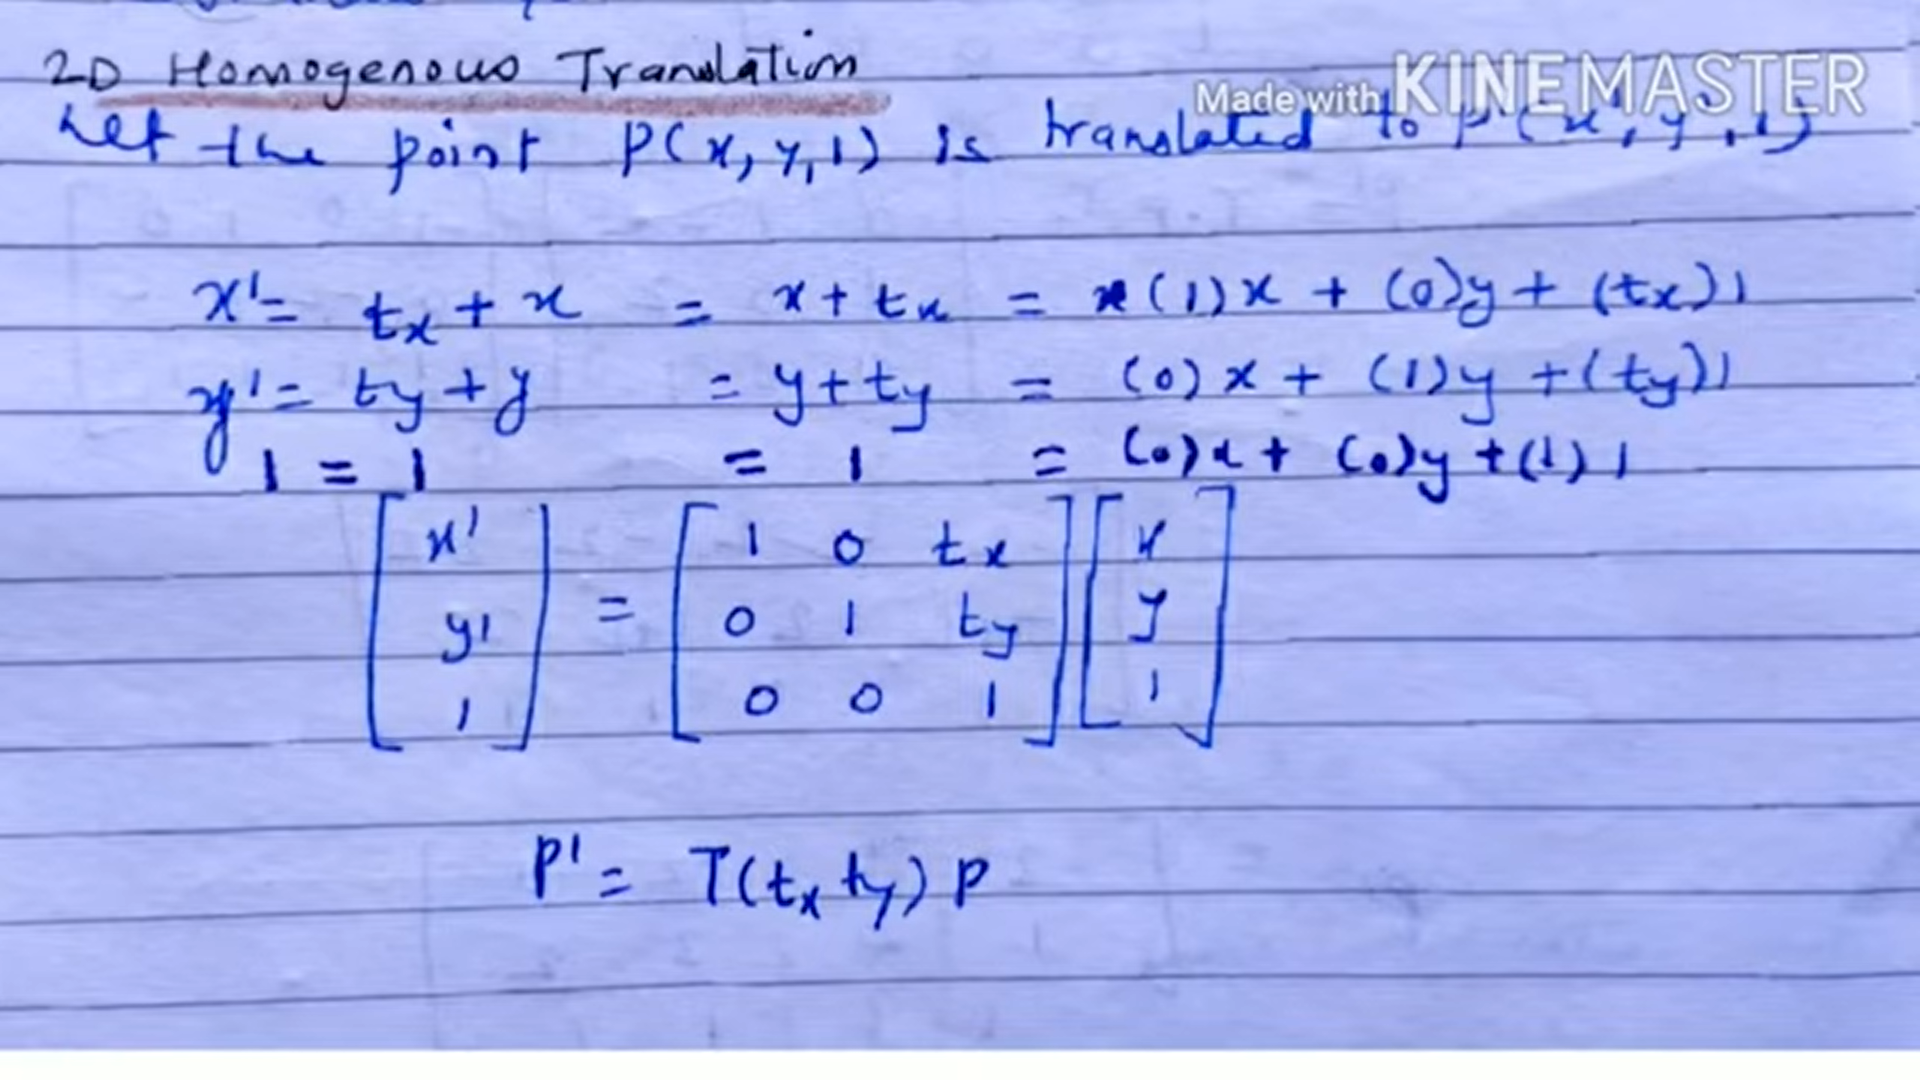 2D Homogenous Translation
Made with KINEMASTER
Let the point P(x, y, 1) is translated to P'(x', y', 1)
x' = tx + x = x + tx = (1)x + (0)y + (tx)1
y' = ty + y = y + ty = (0)x + (1)y + (ty)1
1 = 1 = 1 = (0)x + (0)y + (1)1
[x'] = [1 0 tx] [x]
[y'] [0 1 ty] [y]
[1] [0 0 1] [1]
P' = T(tx ty) P